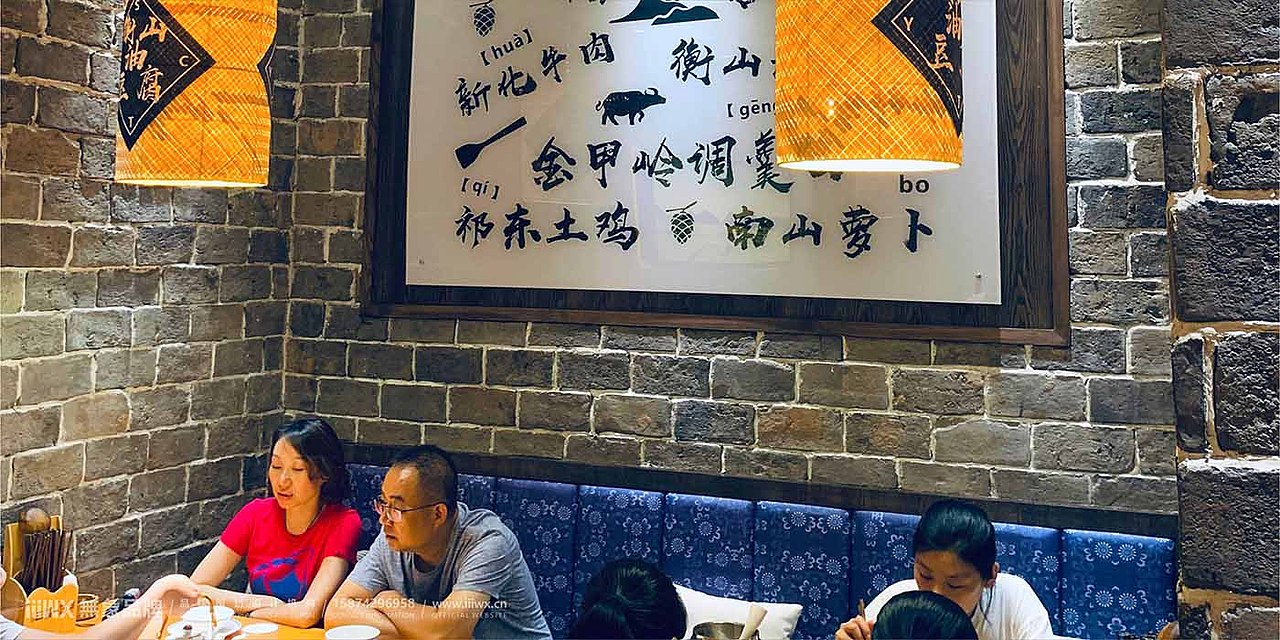 山
衡油
豆腐
C
T
【huà】
新化牛肉
衡山
【gēng
金甲岭调羹
【qí】
bo
祁东土鸡
南山萝卜
Y
油
豆
無象品牌
15874296958 / www.iiiwx.cn
OFFICIAL WEBSITE